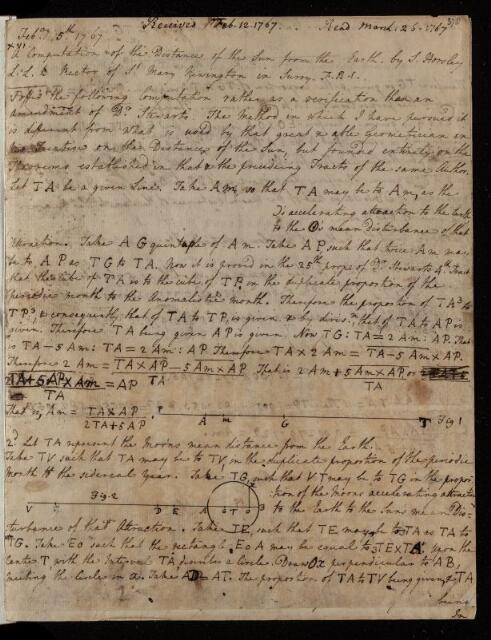 Received Feb. 12. 1767. Read March 26. 1767
Feb.ry 5th 1767
XVI
A Computation of the Distance of the Sun from the Earth. by S. Horsley
L.L.B Rector of St Mary Newington in Surry. F.R.S.
the following Computation rather as a verification than an
amendment of Dr Stewarts. The Method in which I have pursued it
is different from what is used by that great & able Geometrician in
on the Distance of the Sun, but founded entirely on the
Theorems established in that & the preceeding Tracts of the same Author.
Let TA be a given Line. Take Am, so that TA may be to Am, as the
)s accelerating attraction to the Earth
to the ʘs mean disturbance of that
Attraction. Take AG quintuple of Am. Take AP such that twice Am may
be to AP as TG to TA. Now it is proved in the 25th prop. of Dr Stewarts 4th Tract
that the cube of TA is to the cube of TP in the duplicate proportion of the
periodic month to the Anomalistic month. Therefore the proportion of TA3 to
TP3, & consequently, that of TA to TP, is given & by divis.n that of TA to AP is
given. Therefore TA being given AP is given. Now TG : TA = 2Am : AP. That
is TA – 5Am : TA = 2Am : AP Therefore TA × 2Am = TA – 5Am × AP.
Therefore 2Am = TA × AP – 5Am × AP. That is 2Am + 5Am × AP or
TA TA
2TA + 5AP × Am = AP
TA
That is, Am = TA × AP
2TA + 5AP
P A m G T Fig 1
2d Let TA represent the Moons mean distance from the Earth.
Take TV such that TA may be to TV, in the duplicate proportion of the periodic
Month to the sidereal year. Take TG such that VT may be to TG in the propor
tion of the Moons accelerating attraction
Fig. 2
to the Earth to the Suns mean Dis
V D E A T B
turbance of that Attraction. Take TE, such that TE may be to TA as TA to
TG. Take Eo such that the rectangle EoA may be equal to 3TE×TA. upon the
Center T with the Interval TA, describe a Circle. Draw Ox perpendicular to AB,
meeting the Circle in x. Take AD = AT. The proportion of TA to TV being given, & TA
being